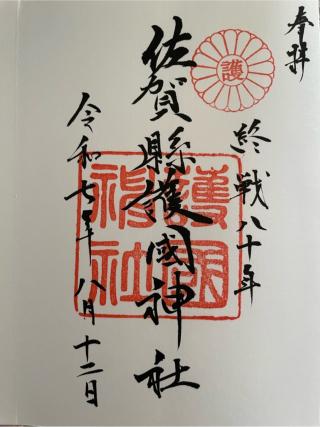 奉拝
護
終戦八十年
佐賀縣護國神社
護國
神社
令和七年八月十二日